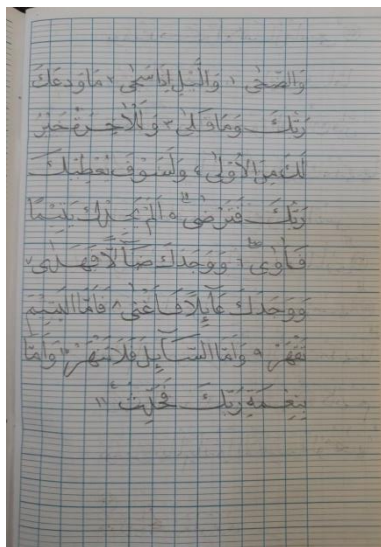 وَالضُّحٰى ١ وَالَّيْلِ اِذَا سَجٰى ٢ مَا وَدَّعَكَ
رَبُّكَ وَمَا قَلٰى ٣ وَلَلْاٰخِرَةُ خَيْرٌ
لَكَ مِنَ الْاُوْلٰى ٤ وَلَسَوْفَ يُعْطِيْكَ
رَبُّكَ فَتَرْضٰى ٥ اَلَمْ يَجِدْكَ يَتِيْمًا
فَاٰوٰى ٦ وَوَجَدَكَ ضَآلًّا فَهَدٰى ٧
وَوَجَدَكَ عَآئِلًا فَاَغْنٰى ٨ فَاَمَّا الْيَتِيْمَ
تَقْهَرْ ٩ وَاَمَّا السَّآئِلَ فَلَا تَنْهَرْ ١٠ وَاَمَّا
بِنِعْمَةِ رَبِّكَ فَحَدِّثْ ١١